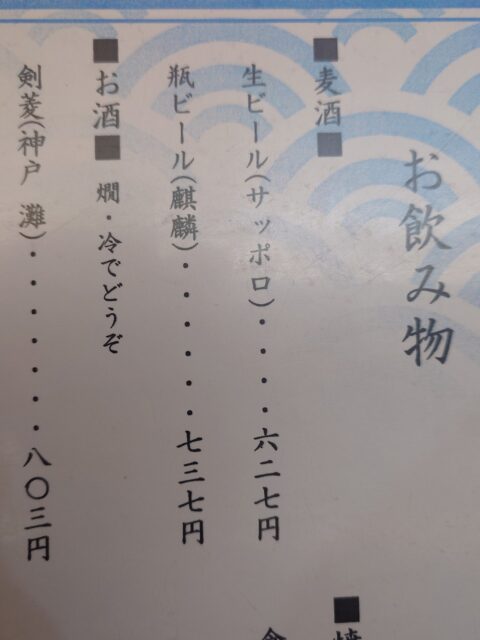 お飲み物
■麦酒■
生ビール(サッポロ)・・・・六二七円
瓶ビール(麒麟)・・・・・・七三七円
■お酒■ 燗・冷でどうぞ
剣菱(神戸 灘)・・・・・・・八〇三円
■